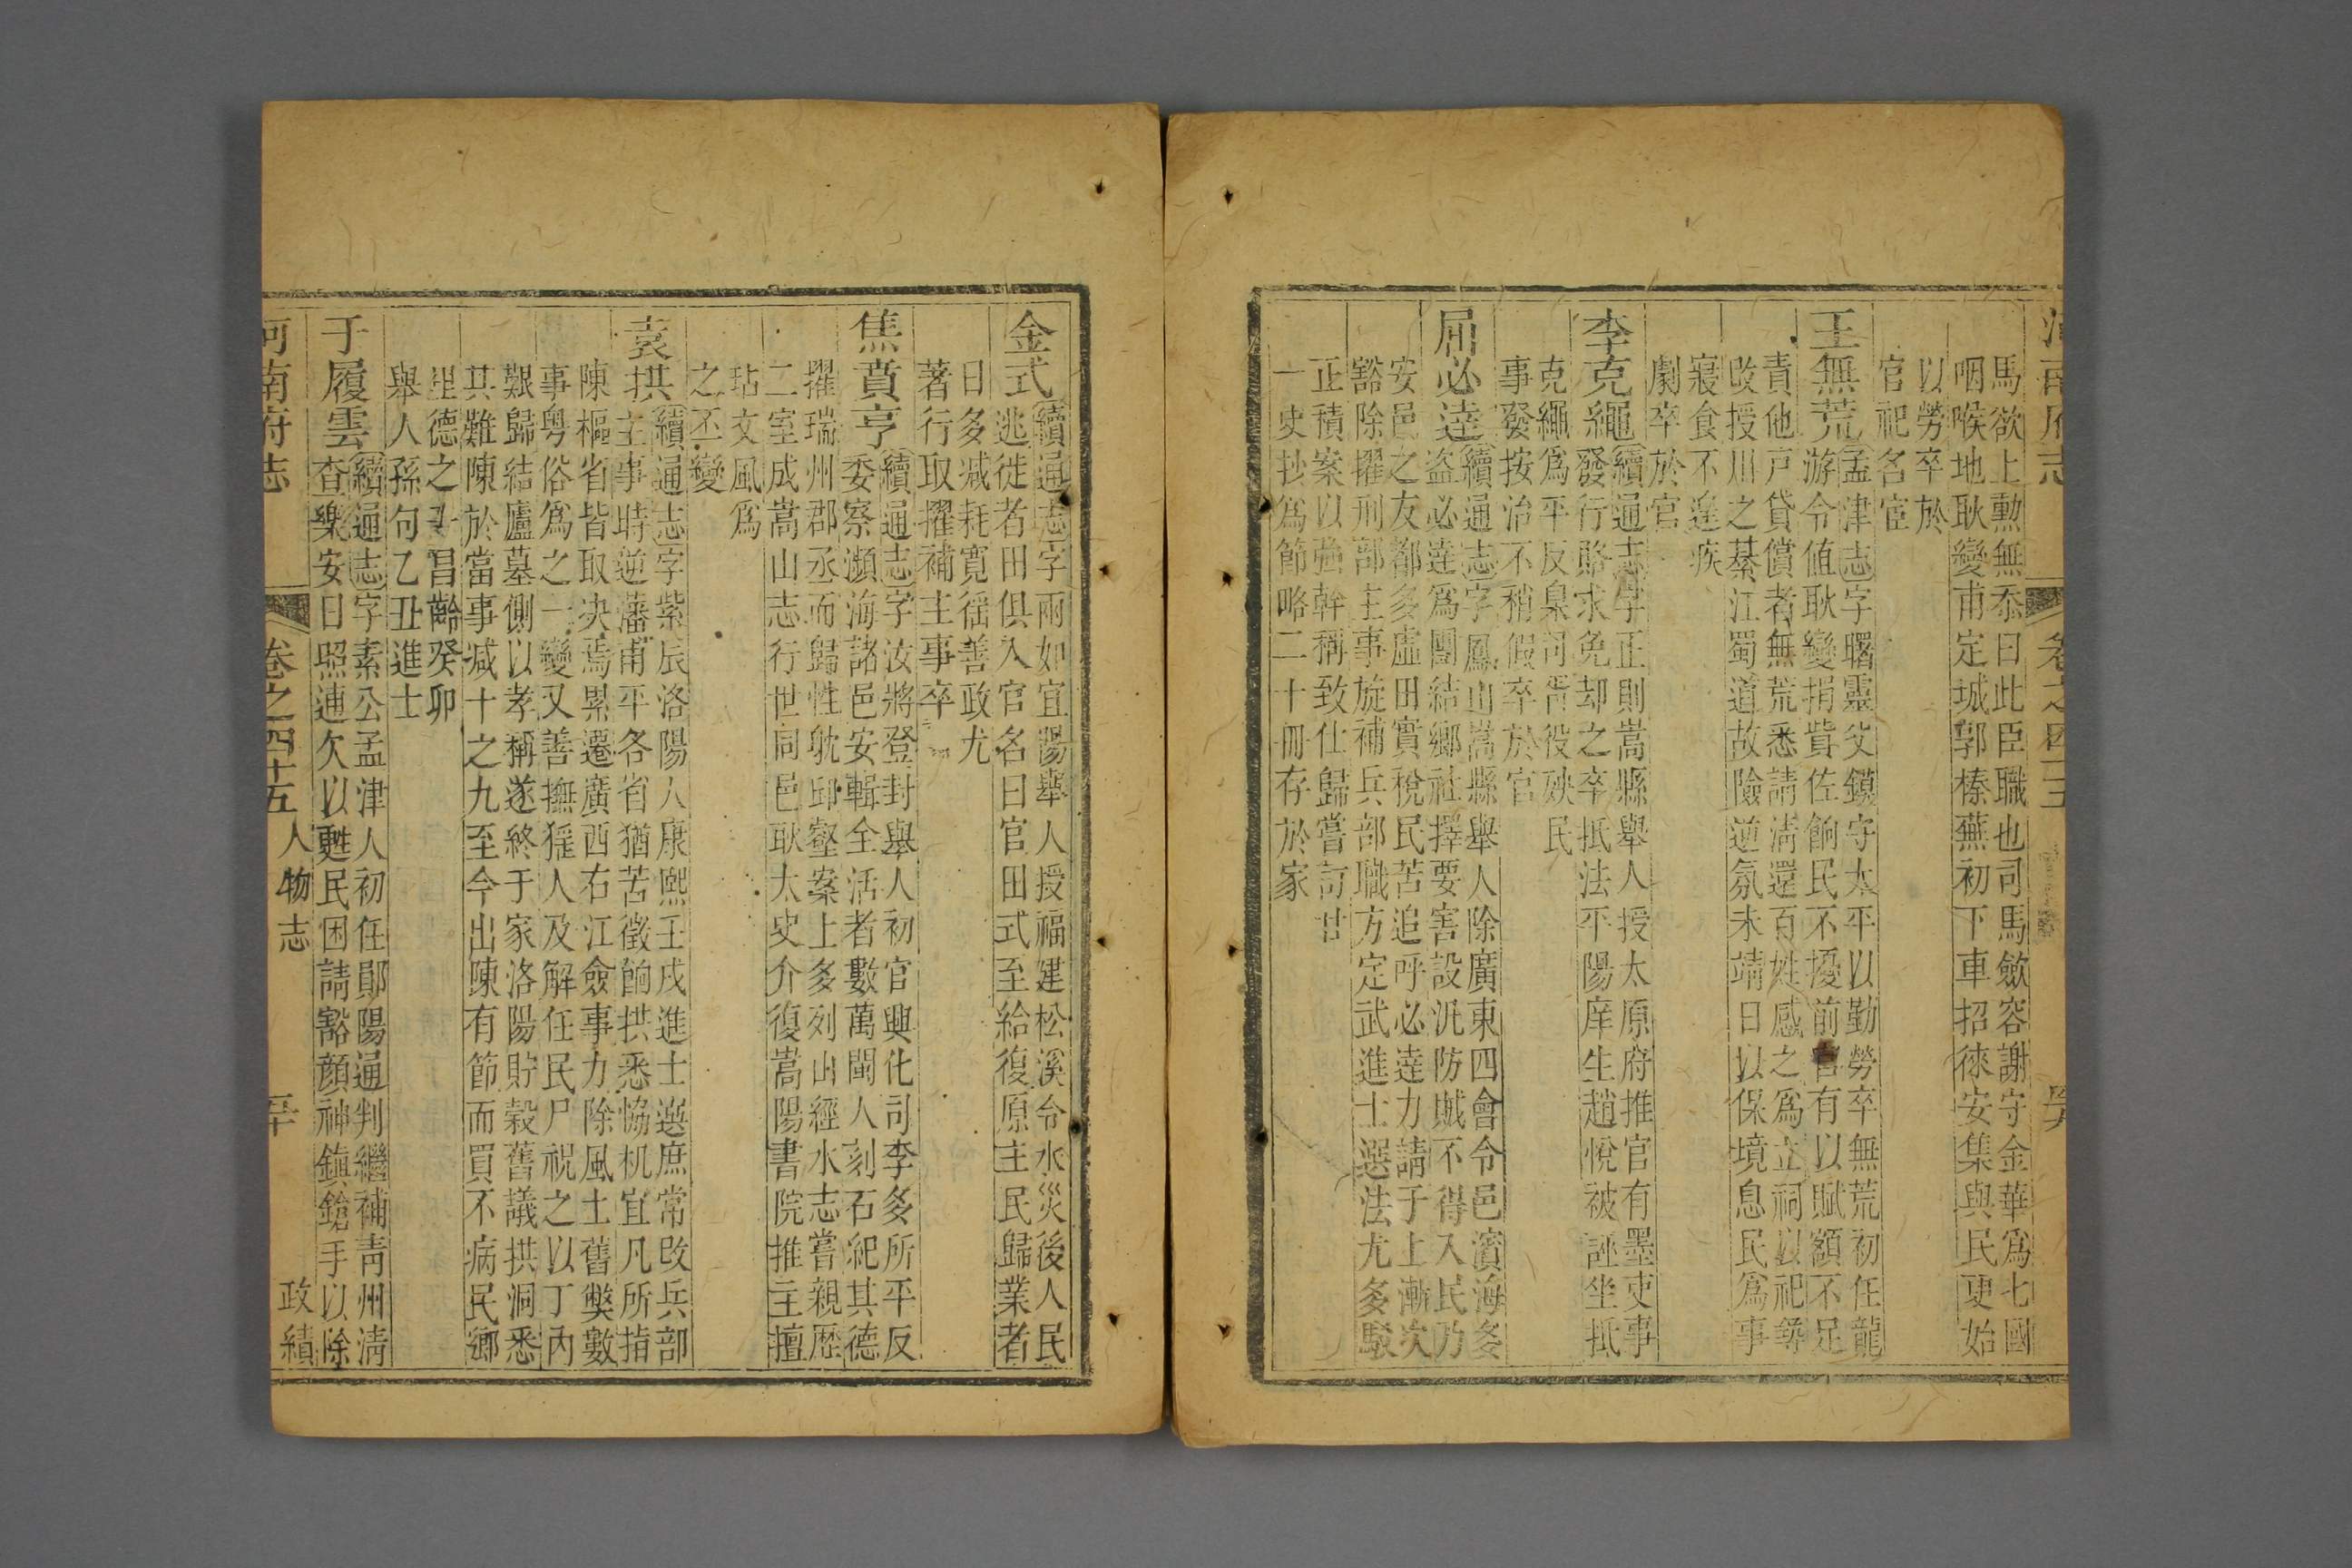 河南府志
卷之四十五
馬欲上勲無忝曰此臣職也司馬斂容謝守金華爲七國
咽喉地耿變甫定城郭榛蕪初下車招徠安集與民更始
以勞卒於
官祀名宦
王無荒孟津志字曙靈父鏌守太平以勤勞卒無荒初任龍
游令値耿變捐貲佐餉民不擾前官有以賦額不足
責他戸貸償者無荒悉請淸還百姓感之爲立祠以祀尋
改授川之綦江蜀道故險逆氛未靖日以保境息民爲事
寢食不遑疾
劇卒於官
李克繩續通志字正則嵩縣舉人授太原府推官有墨吏事
發行賂求免却之卒抵法平陽庠生趙悅被誣坐抵
克繩爲平反臬司胥役殃民
事發按治不稍假卒於官
屈必達續通志字鳳山嵩縣舉人除廣東四會令邑濱海多
盜必達爲團結鄉社擇要害設汛防賊不得入民乃
安邑之友都多虛田實稅民苦追呼必達力請于上漸次
豁除擢刑部主事旋補兵部職方定武進士選法尤多駁
正積案以強幹稱致仕歸嘗訂廿
一史抄爲節略二十冊存於家
金式續通志字兩如宜陽舉人授福建松溪令水災後人民
逃徙者田俱入官名曰官田式至給復原主民歸業者
日多减耗寬徭善政尤
著行取擢補主事卒
焦賁亨續通志字汝將登封舉人初官興化司李多所平反
委察瀕海諸邑安輯全活者數萬閩人刻石紀其德
擢瑞州郡丞而歸性躭邱壑案上多列山經水志嘗親歷
二室成嵩山志行世同邑耿太史介復嵩陽書院推主擅
玷文風爲
之丕變
袁拱續通志字紫辰洛陽人康熙壬戌進士選庶常改兵部
主事時逆藩甫平各省猶苦徵餉拱悉協机宜凡所指
陳樞省皆取决焉累遷廣西右江僉事力除風土舊獘數
事粤俗爲之一變又善撫猺人及解任民尸祝之以丁內
艱歸結廬墓側以孝稱遂終于家洛陽貯榖舊議拱洞悉
其難陳於當事减十之九至今出陳有節而買不病民鄉
里德之子昌齡癸卯
舉人孫句乙丑進士
于履雲續通志字素公孟津人初任鄖陽通判繼補靑州淸
查樂安日照逋欠以甦民困請豁顔神鎮鎗手以除
河南府志
卷之四十五
人物志
五十
政績